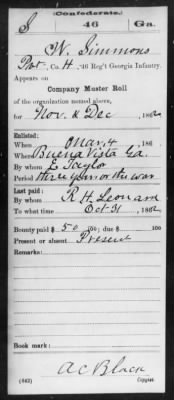 (Confederate.)
S 46 Ga.
W. Simmons
Pvt, Co. H, 46 Reg't Georgia Infantry.
Appears on
Company Muster Roll
of the organization named above,
for Nov. & Dec, 1862.
Enlisted:
When Mar. 4, 186
Where Buena Vista Ga.
By whom E. Taylor
Period three years or the war
Last paid:
By whom R. H. Leonard
To what time Oct 31, 1862.
Bounty paid $ 50 /100; due $ /100
Present or absent Present
Remarks:
Book mark:
A C Black
(642) Copyist.